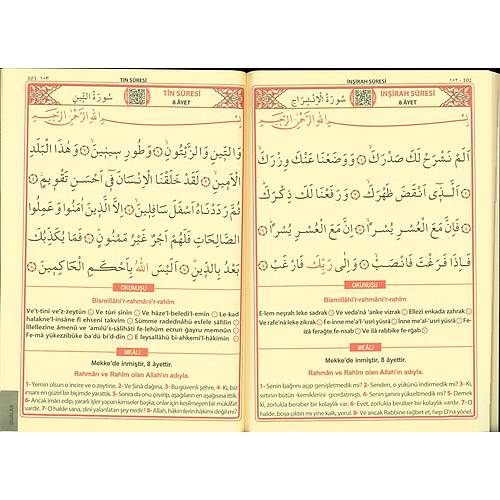 ١٠٢ - 102
İNŞİRAH SÛRESİ
سُورَةُ الْاِنْشِرَاحِ
İNŞİRAH SÛRESİ
8 ÂYET
بِسْمِ اللّٰهِ الرَّحْمٰنِ الرَّحِيمِ
اَلَمْ نَشْرَحْ لَكَ صَدْرَكَۙ ﴿١﴾ وَوَضَعْنَا عَنْكَ وِزْرَكَۙ ﴿٢﴾
اَلَّذ۪ٓي اَنْقَضَ ظَهْرَكَۙ ﴿٣﴾ وَرَفَعْنَا لَكَ ذِكْرَكَۜ ﴿٤﴾
فَاِنَّ مَعَ الْعُسْرِ يُسْرًاۙ ﴿٥﴾ اِنَّ مَعَ الْعُسْرِ يُسْرًاۜ ﴿٦﴾
فَاِذَا فَرَغْتَ فَانْصَبْۙ ﴿٧﴾ وَاِلٰى رَبِّكَ فَارْغَبْ ﴿٨﴾
OKUNUŞU
Bismillâhi'r-rahmâni'r-rahîm
E-lem neşrah leke sadrak ① Ve veda'nâ 'anke vizrak ② Ellezî enkada zahrak ③
Ve rafe'nâ leke zikrak ④ Fe-inne me'a'l-'usri yüsrâ ⑤ İnne me'a'l-'usri yüsrâ ⑥ Fe-
izâ ferağte fe-nsab ⑦ Ve ilâ rabbike fe-rğab ⑧
MEÂLİ
Mekke'de inmiştir, 8 âyettir.
Rahmân ve Rahîm olan Allah'ın adıyla.
1- Senin bağrını açıp genişletmedik mi? 2- Senden, o yükünü indirmedik mi? 3- Ki,
sırtının bütün -kemiklerini- gıcırdatmıştı. 4- Senin şanını yükseltmedik mi? 5- Demek
ki, zorlukla beraber bir kolaylık var. 6- Evet, zorlukla beraber bir kolaylık var. 7- O
halde, boşa çıktın mı yine kalk, yorul. 8- Ve ancak Rabbine rağbet et, hep O'na yönel.
103 - ١٠٣
TÎN SÛRESİ
سُورَةُ التِّينِ
TÎN SÛRESİ
8 ÂYET
بِسْمِ اللّٰهِ الرَّحْمٰنِ الرَّحِيمِ
وَالتّ۪ينِ وَالزَّيْتُونِۙ ﴿١﴾ وَطُورِ س۪ين۪ينَۙ ﴿٢﴾ وَهٰذَا الْبَلَدِ
الْاَم۪ينِۙ ﴿٣﴾ لَقَدْ خَلَقْنَا الْاِنْسَانَ ف۪ٓي اَحْسَنِ تَقْو۪يمٍۘ ﴿٤﴾
ثُمَّ رَدَدْنَاهُ اَسْفَلَ سَافِل۪ينَۙ ﴿٥﴾ اِلَّا الَّذ۪ينَ اٰمَنُوا وَعَمِلُوا
الصَّالِحَاتِ فَلَهُمْ اَجْرٌ غَيْرُ مَمْنُونٍۜ ﴿٦﴾ فَمَا يُكَذِّبُكَ
بَعْدُ بِالدّ۪ينِۜ ﴿٧﴾ اَلَيْسَ اللّٰهُ بِاَحْكَمِ الْحَاكِم۪ينَ ﴿٨﴾
OKUNUŞU
Bismillâhi'r-rahmâni'r-rahîm
Ve't-tîni ve'z-zeytûn ① Ve tûri sînîn ② Ve hâze'l-beledi'l-emîn ③ Le-kad
halakne'l-insâne fî ehseni takvîm ④ Sümme radednâhü esfele sâfilîn ⑤
İllellezîne âmenû ve 'amilü's-sâlihâti fe-lehüm ecrun ğayru memnûn ⑥
Fe-mâ yükezzibüke ba'dü bi'd-dîn ⑦ E leysallâhü bi-ahkemi'l-hâkimîn ⑧
MEÂLİ
Mekke'de inmiştir, 8 âyettir.
Rahmân ve Rahîm olan Allah'ın adıyla.
1- Yemin olsun o incire ve o zeytine, 2- Ve Sinâ dağına, 3- Bu güvenli şehre, 4- Ki, biz
insanı en güzel bir biçimde yarattık. 5- Sonra da onu çevirip, aşağıların en aşağısına ittik.
6- Ancak iman edip, yararlı işler yapan kimseler başka; onlar için kesilmeyen bir mükâfat
vardır. 7- O halde sana, dini yalanlatan şey nedir? 8- Allah, hâkimlerin hâkimi değil mi?